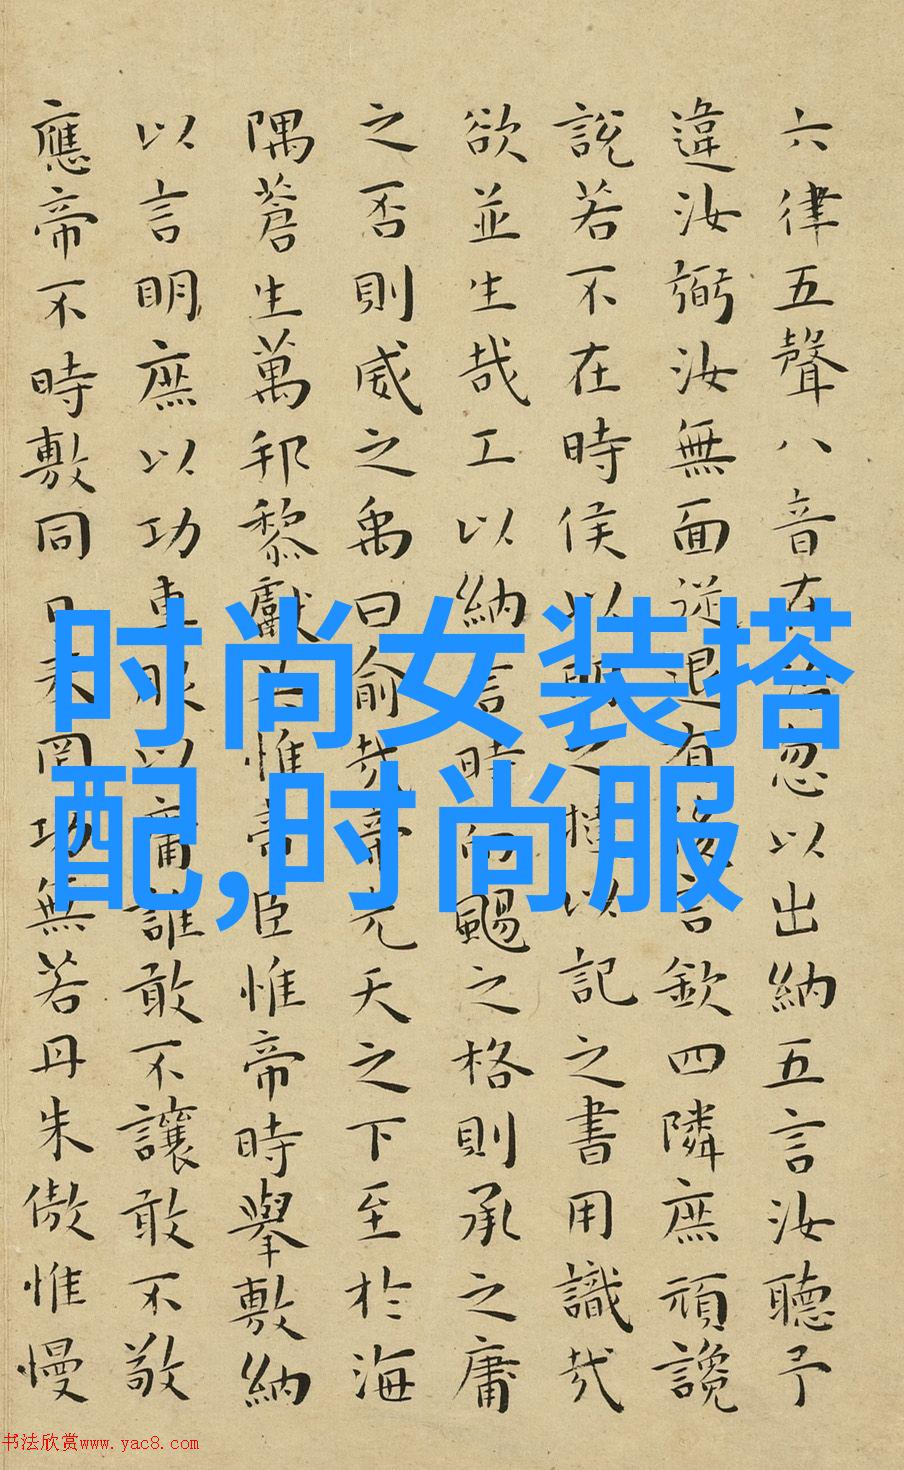 六律五聲八音在治忽以出納五言汝聽予
違汝弼汝無面從退有後言欽四隣庶頑讒
說若不在時侯以明之撻以記之書用識哉
欲並生哉工以納言時而颺之格則承之庸
之否則威之禹曰俞哉帝光天之下至於海
隅蒼生萬邦黎獻共惟帝臣惟帝時舉敷納
以言明庶以功車服以庸誰敢不讓敢不敬
應帝不時敷同日奏罔功無若丹朱傲惟慢
时尚女装搭
配,时尚服
书法欣赏www.yac8.com